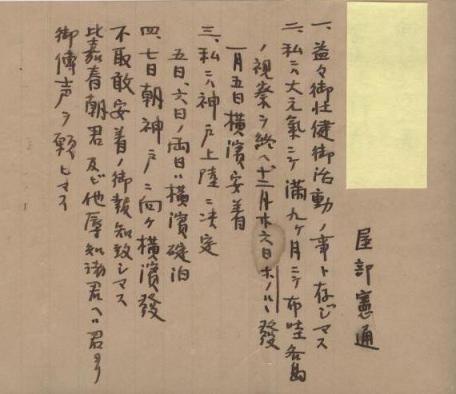 屋部憲通
一、益々御壮健御活動ノ事ト存ジマス
二、私ハ大元氣ニテ満九ヶ月ニテ布哇各島
ノ視察ヲ終ヘ十二月廿六日ホノルル發
一月五日横濱安着
三、私ハ神戸上陸ニ決定
五日、六日ノ両日ハ横濱碇泊
四、七日朝神戸ニ向ケ横濱發
不取敢安着ノ御報知致シマス
比嘉春朝君及ビ他辱知諸君ヘハ君ヨリ
御傳声ヲ願ヒマス